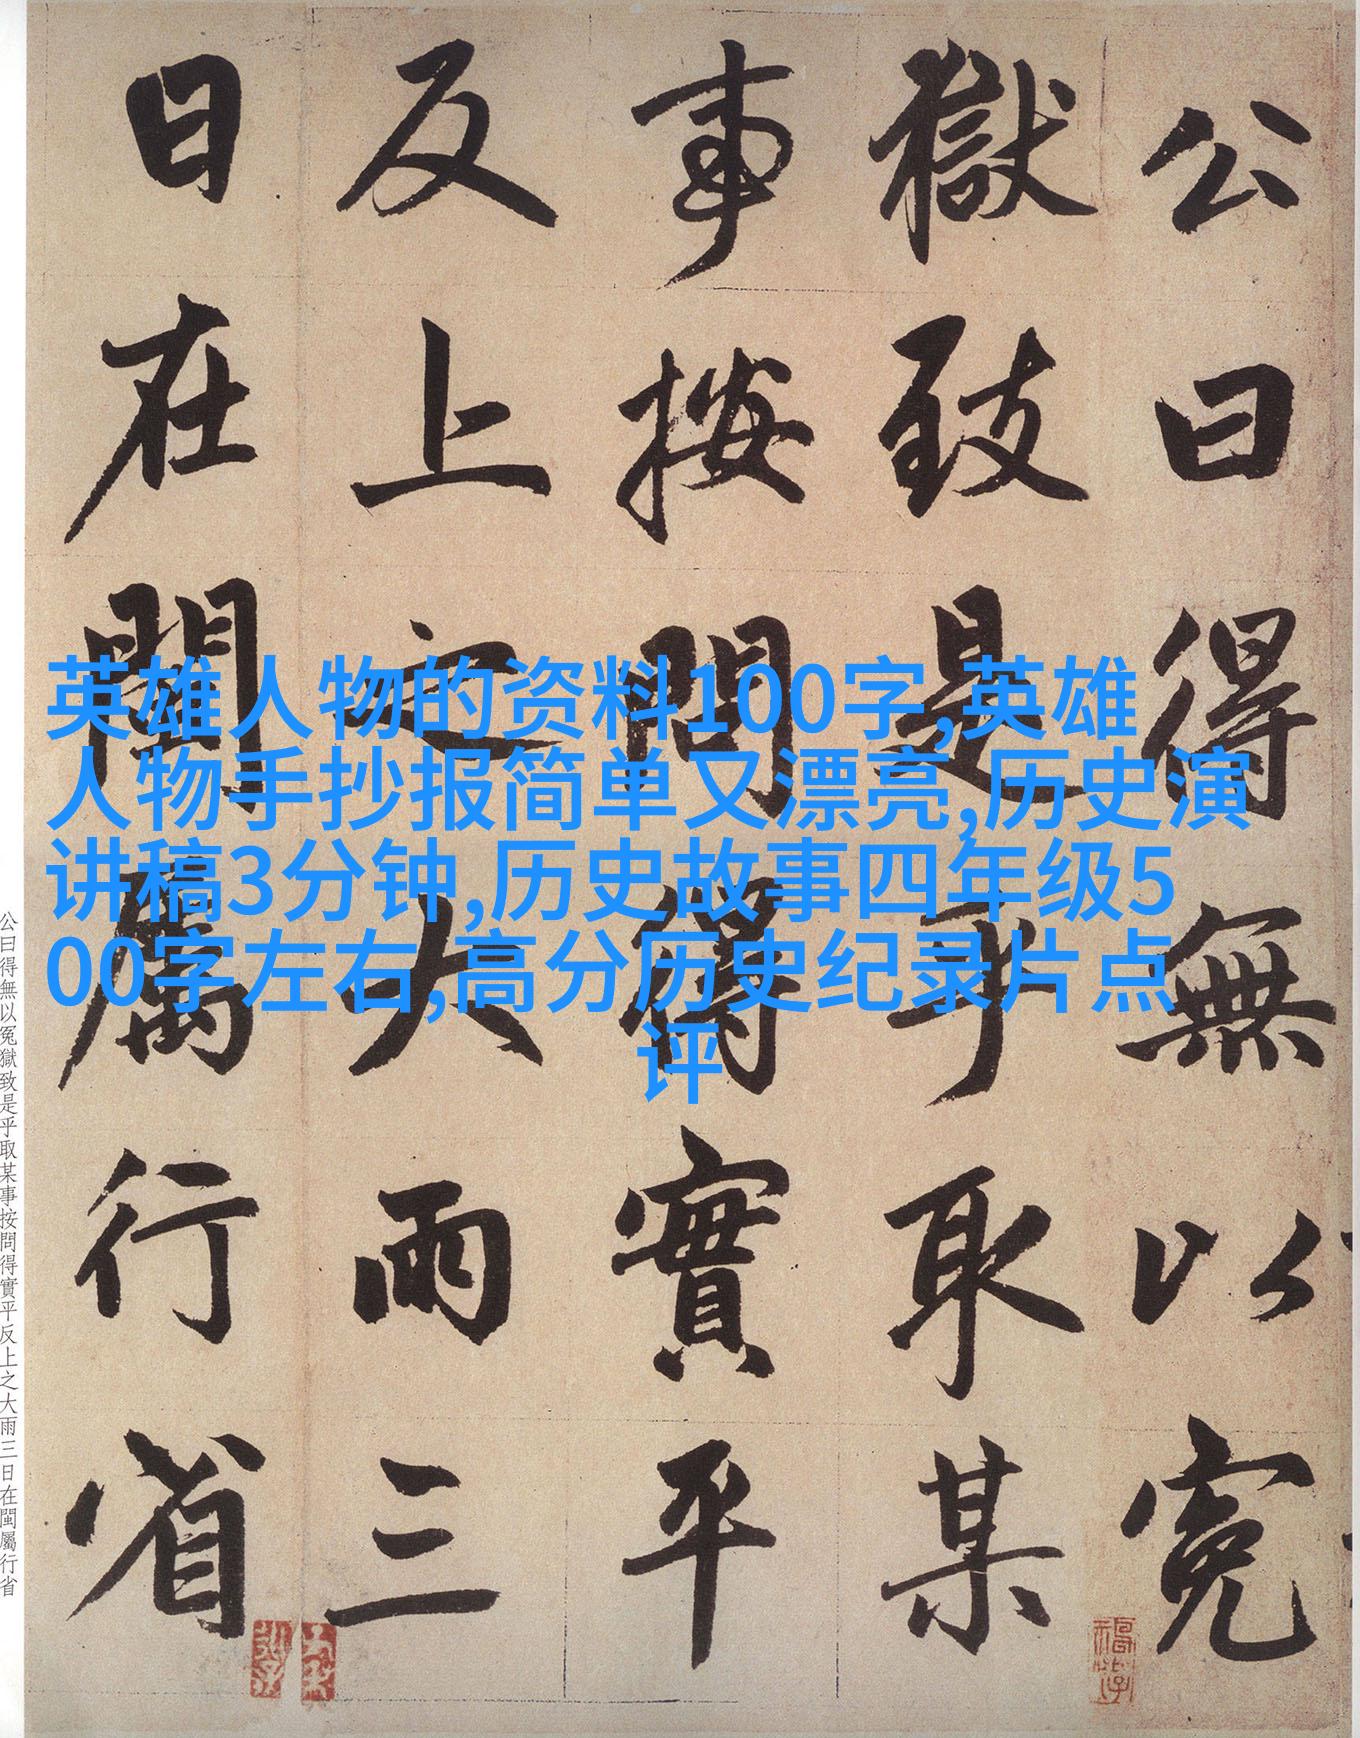 公曰得無以冤
獄致是乎取某
事按問得實平
反上之大雨三
日在閩屬行省
英雄人物的资料100字,英雄
人物手抄报简单又漂亮,历史演
讲稿3分钟,历史故事四年级5
00字左右,高分历史纪录片点
评
公曰得無以冤獄致是乎取某事按問得實平反上之大雨三日在閩屬行省